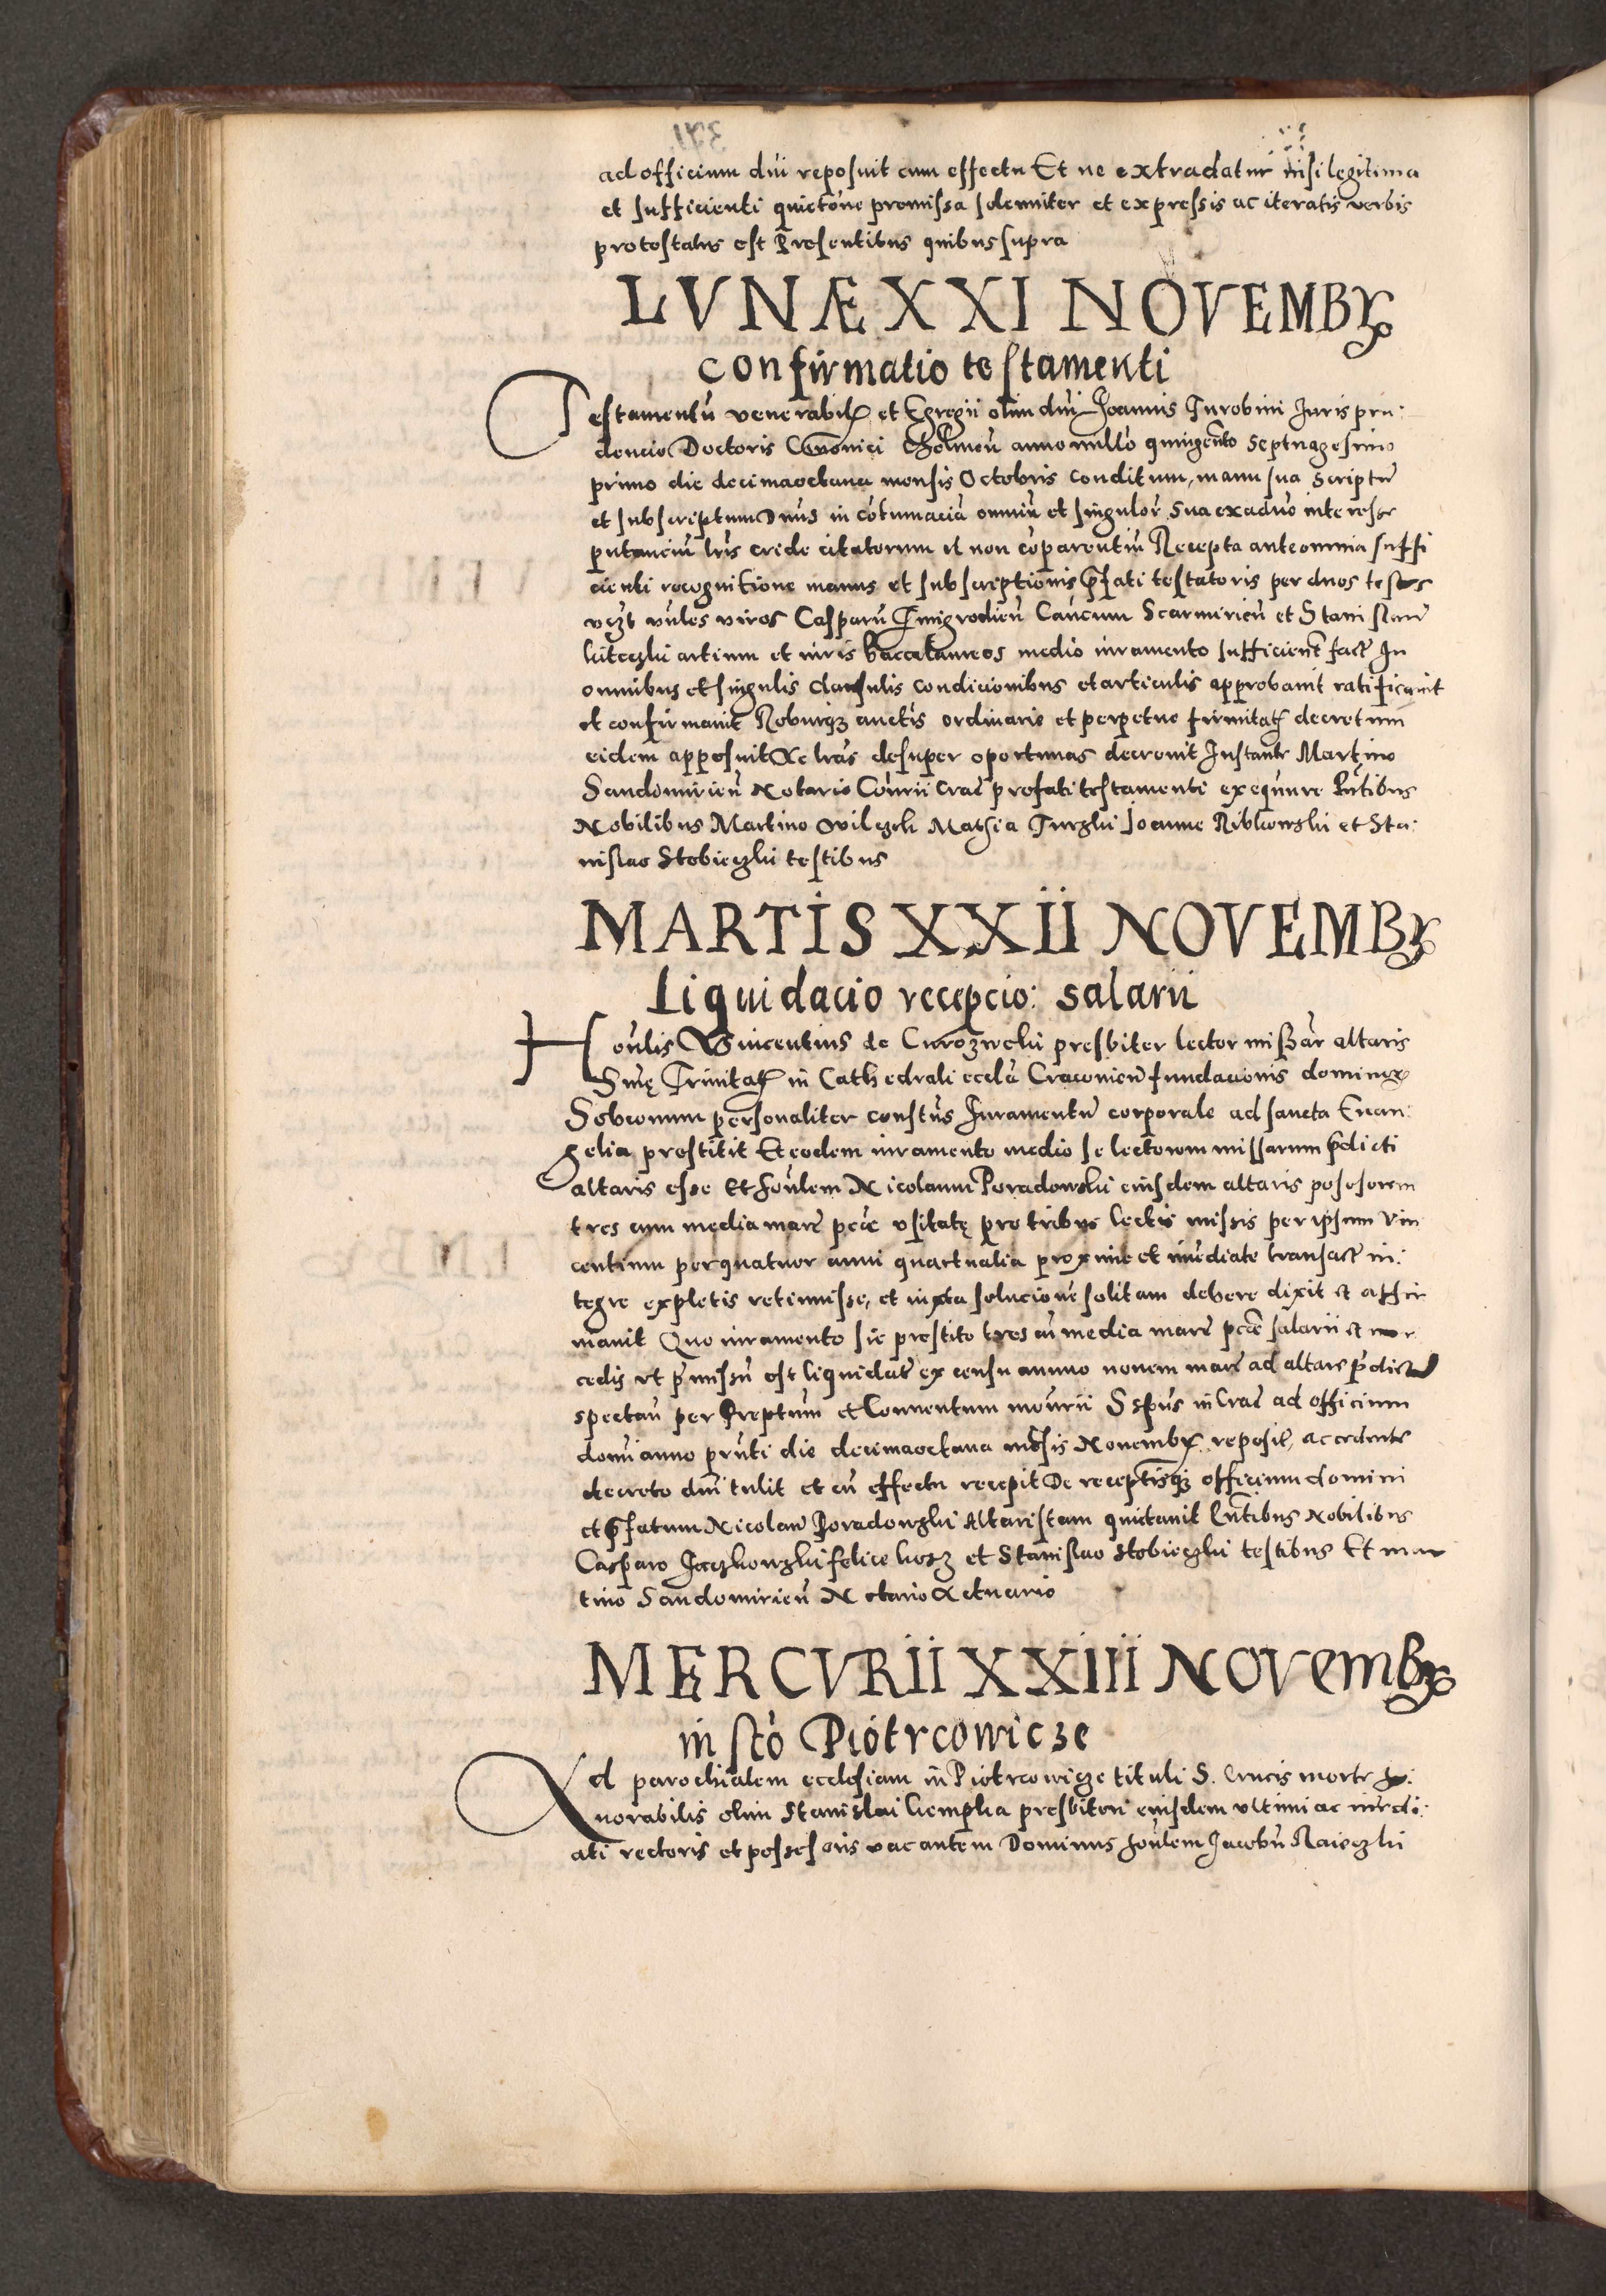 ad officium dni reposuit cum effectu Et ne extradatur nisi legitima
et sufficienti quictõne premissa solemniter et expressis ac iteratis verbis
protestatus est Presentibus quibus supra
LVNÆ XXI NOVEMBR
confirmatio testamenti
Testamentũ venerabil et Egregii olim dni Joannis Turobini Juris pru:
dencie Doctoris Canonici Cholmeñ anno millõ quingento septuagesimo
primo die decimaoctava mensis Octobris conditum, manu sua scriptũ
et subscriptum Dnus in cõtumaciã omniũ et singulor sua ex aduõ interesse
putanciũ lris cride citatorum et non cõparentiũ Recepta ante omnia suffi
cienti recognitione manus et subscriptionis pfati testatoris per duos testes
vezt vñles viros Casparũ Zmigrodieñ Caucum Scarmirieñ et Stanislaũ
artium et iuris baccelaureos medio iuramento sufficient fact In
omnibus et singulis clausulis condicionibus et articulis approbauit ratificauit
et confirmauit Roburqz auctis ordinarie et perpetue firmitat decretum
eidem apposuit Ac lras desuper oportunas decreuit Instante Martino
Sandomirieñ Notario Cõnrii Crac prefati testamenti exequutore Pñtibus
Nobilibus Martino Mathia Turzki Joanne Ribkowzki et Sta:
nislao Stobieczki testibus
MARTIS XXII NOVEMBR
Liquidacio recepcio: salarii
Hoñlis Vincentius de Curozweki presbiter lector missar altaris
Smę Trinitat in Cathedrali eccla Cracouieñ fundacionis dominor
personaliter constus Juramentũ corporale ad sancta Euan:
gelia prestitit Et eodem iuramento medio se lectorem missarum pdicti
altaris esse Et hoñlem Nicolaum Poradowski eiusdem altaris posesorem
tres cum media marc pcũe vsitatę pro tribus lectis missis per ipsum Vin
centium per quatuor anni quartualia proxime et imediate transact in:
tegre expletis retinuisse, et iuxta solucionẽ solitam debere dixit et affir
mauit Quo iuramento sic prestito tres cũ media marc pcũe salarii et mer
cedis vt pmissũ est liquidat ex censu annuo nonem marc ad altare pdictũ
spectañ per Preptum et Conuentum monrii S spus in Crac ad officium
domi anno pñti die decimaoctaua mẽsis Nouembr reposit, accedente
decreto dni tulit et cũ effectu recepit De receptisqz officium domini
et pfatum Nicolaũ Poradowzki Altaristam quictauit Pñtibus Nobilibus
Casparo Jaczkowzki felice kosz et Stanislao Stobieczki testibus Et mar
tino Sandomirieñ Notario Actuario
MERCVRII XXIII Novembr
in stõ Piotrcowicze
Ad parochialem ecclesiam in Piotrcowicze tituli S. Crucis morte ho:
norabilis olim Stanislai kempka presbiteri eiusdem vltimi ac imedi:
ati rectoris et possessoris vacantem Dominus hoñlem Jacobũ Raieczki